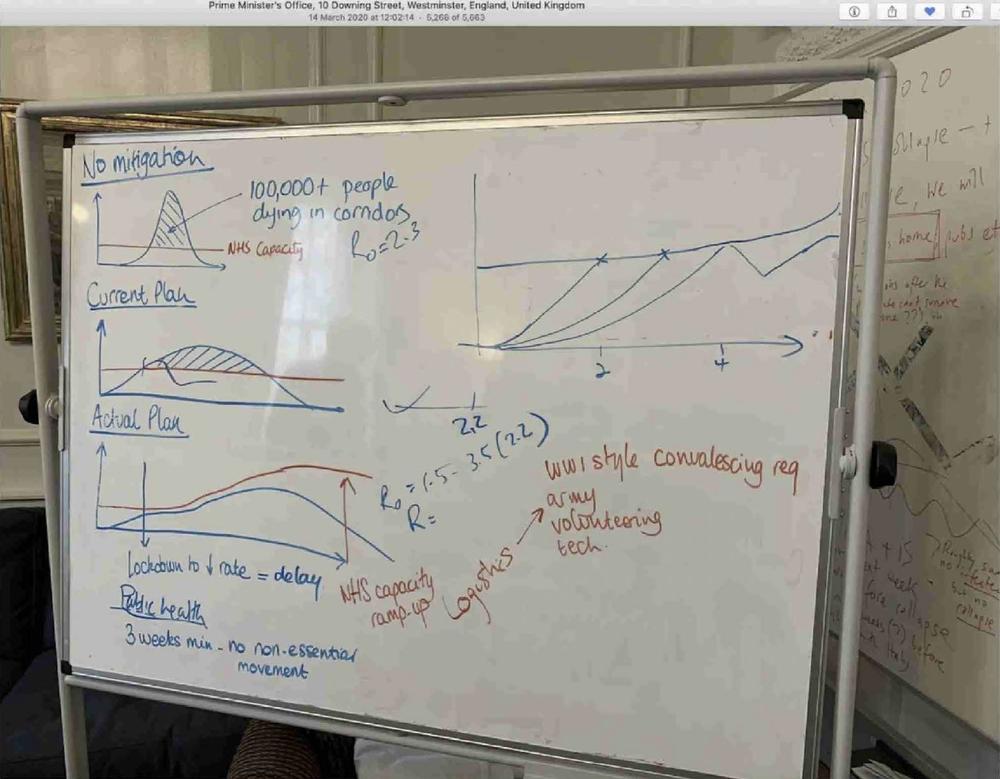 Prime Minister's Office, 10 Downing Street, Westminster, England, United Kingdom
14 March 2020 at 12:02:14 · 5,266 of 5,663
No mitigation
100,000+ people
dying in corridors
NHS Capacity
R₀ = 2.3
Current Plan
2
4
2.2
Actual Plan
R₀ = 1.5 - 3.5 (2.2)
R =
Lockdown to ↓ rate = delay
NHS capacity
ramp-up
Logistics
WW1 style convalescing req
army
volunteering
tech.
Public health
3 weeks min - no non-essential
movement
020
we will
home
pubs
after he
+ 15
week
collapse
before
Roughly
but no
collapse